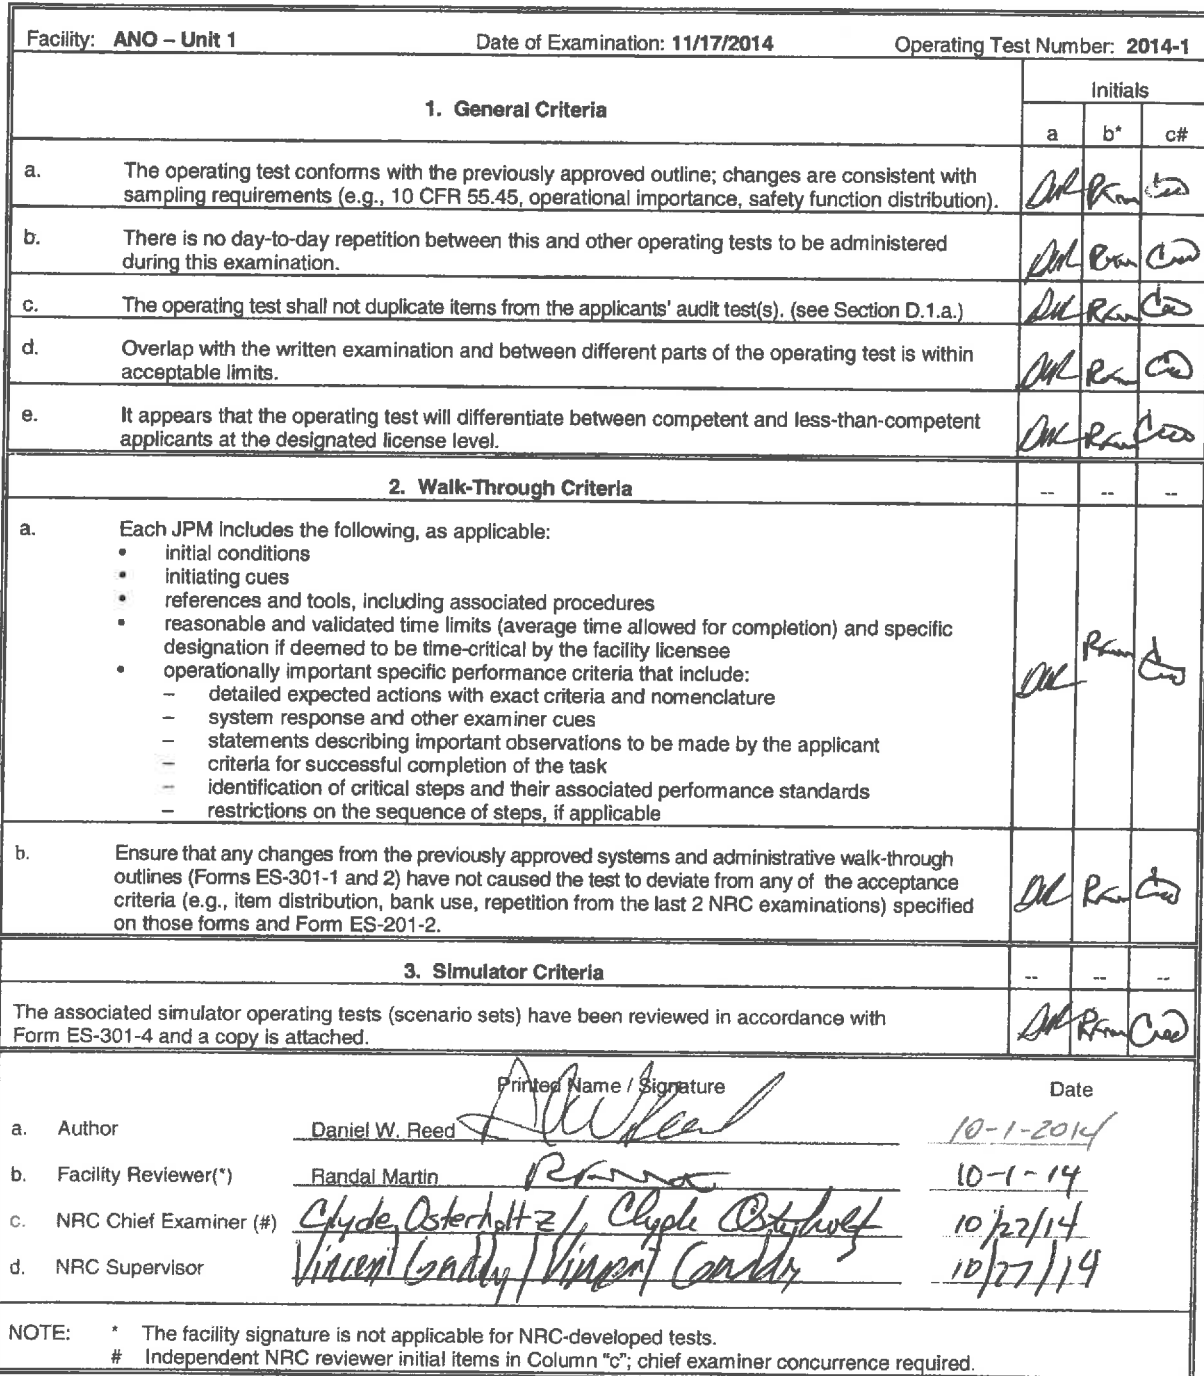 Facility: ANO – Unit 1 Date of Examination: 11/17/2014 Operating Test Number: 2014-1
1. General Criteria
Initials
a b* c#
a. The operating test conforms with the previously approved outline; changes are consistent with
sampling requirements (e.g., 10 CFR 55.45, operational importance, safety function distribution).
b. There is no day-to-day repetition between this and other operating tests to be administered
during this examination.
c. The operating test shall not duplicate items from the applicants' audit test(s). (see Section D.1.a.)
d. Overlap with the written examination and between different parts of the operating test is within
acceptable limits.
e. It appears that the operating test will differentiate between competent and less-than-competent
applicants at the designated license level.
2. Walk-Through Criteria -- -- --
a. Each JPM includes the following, as applicable:
• initial conditions
• initiating cues
• references and tools, including associated procedures
• reasonable and validated time limits (average time allowed for completion) and specific
designation if deemed to be time-critical by the facility licensee
• operationally important specific performance criteria that include:
– detailed expected actions with exact criteria and nomenclature
– system response and other examiner cues
– statements describing important observations to be made by the applicant
– criteria for successful completion of the task
– identification of critical steps and their associated performance standards
– restrictions on the sequence of steps, if applicable
b. Ensure that any changes from the previously approved systems and administrative walk-through
outlines (Forms ES-301-1 and 2) have not caused the test to deviate from any of the acceptance
criteria (e.g., item distribution, bank use, repetition from the last 2 NRC examinations) specified
on those forms and Form ES-201-2.
3. Simulator Criteria -- -- --
The associated simulator operating tests (scenario sets) have been reviewed in accordance with
Form ES-301-4 and a copy is attached.
Printed Name / Signature Date
a. Author Daniel W. Reed 10-1-2014
b. Facility Reviewer(*) Randal Martin 10-1-14
c. NRC Chief Examiner (#) Clyde Osterholtz / Clyde Osterholtz 10/27/14
d. NRC Supervisor Vincent Gaddy / Vincent Gaddy 10/27/14
NOTE: * The facility signature is not applicable for NRC-developed tests.
# Independent NRC reviewer initial items in Column "c"; chief examiner concurrence required.